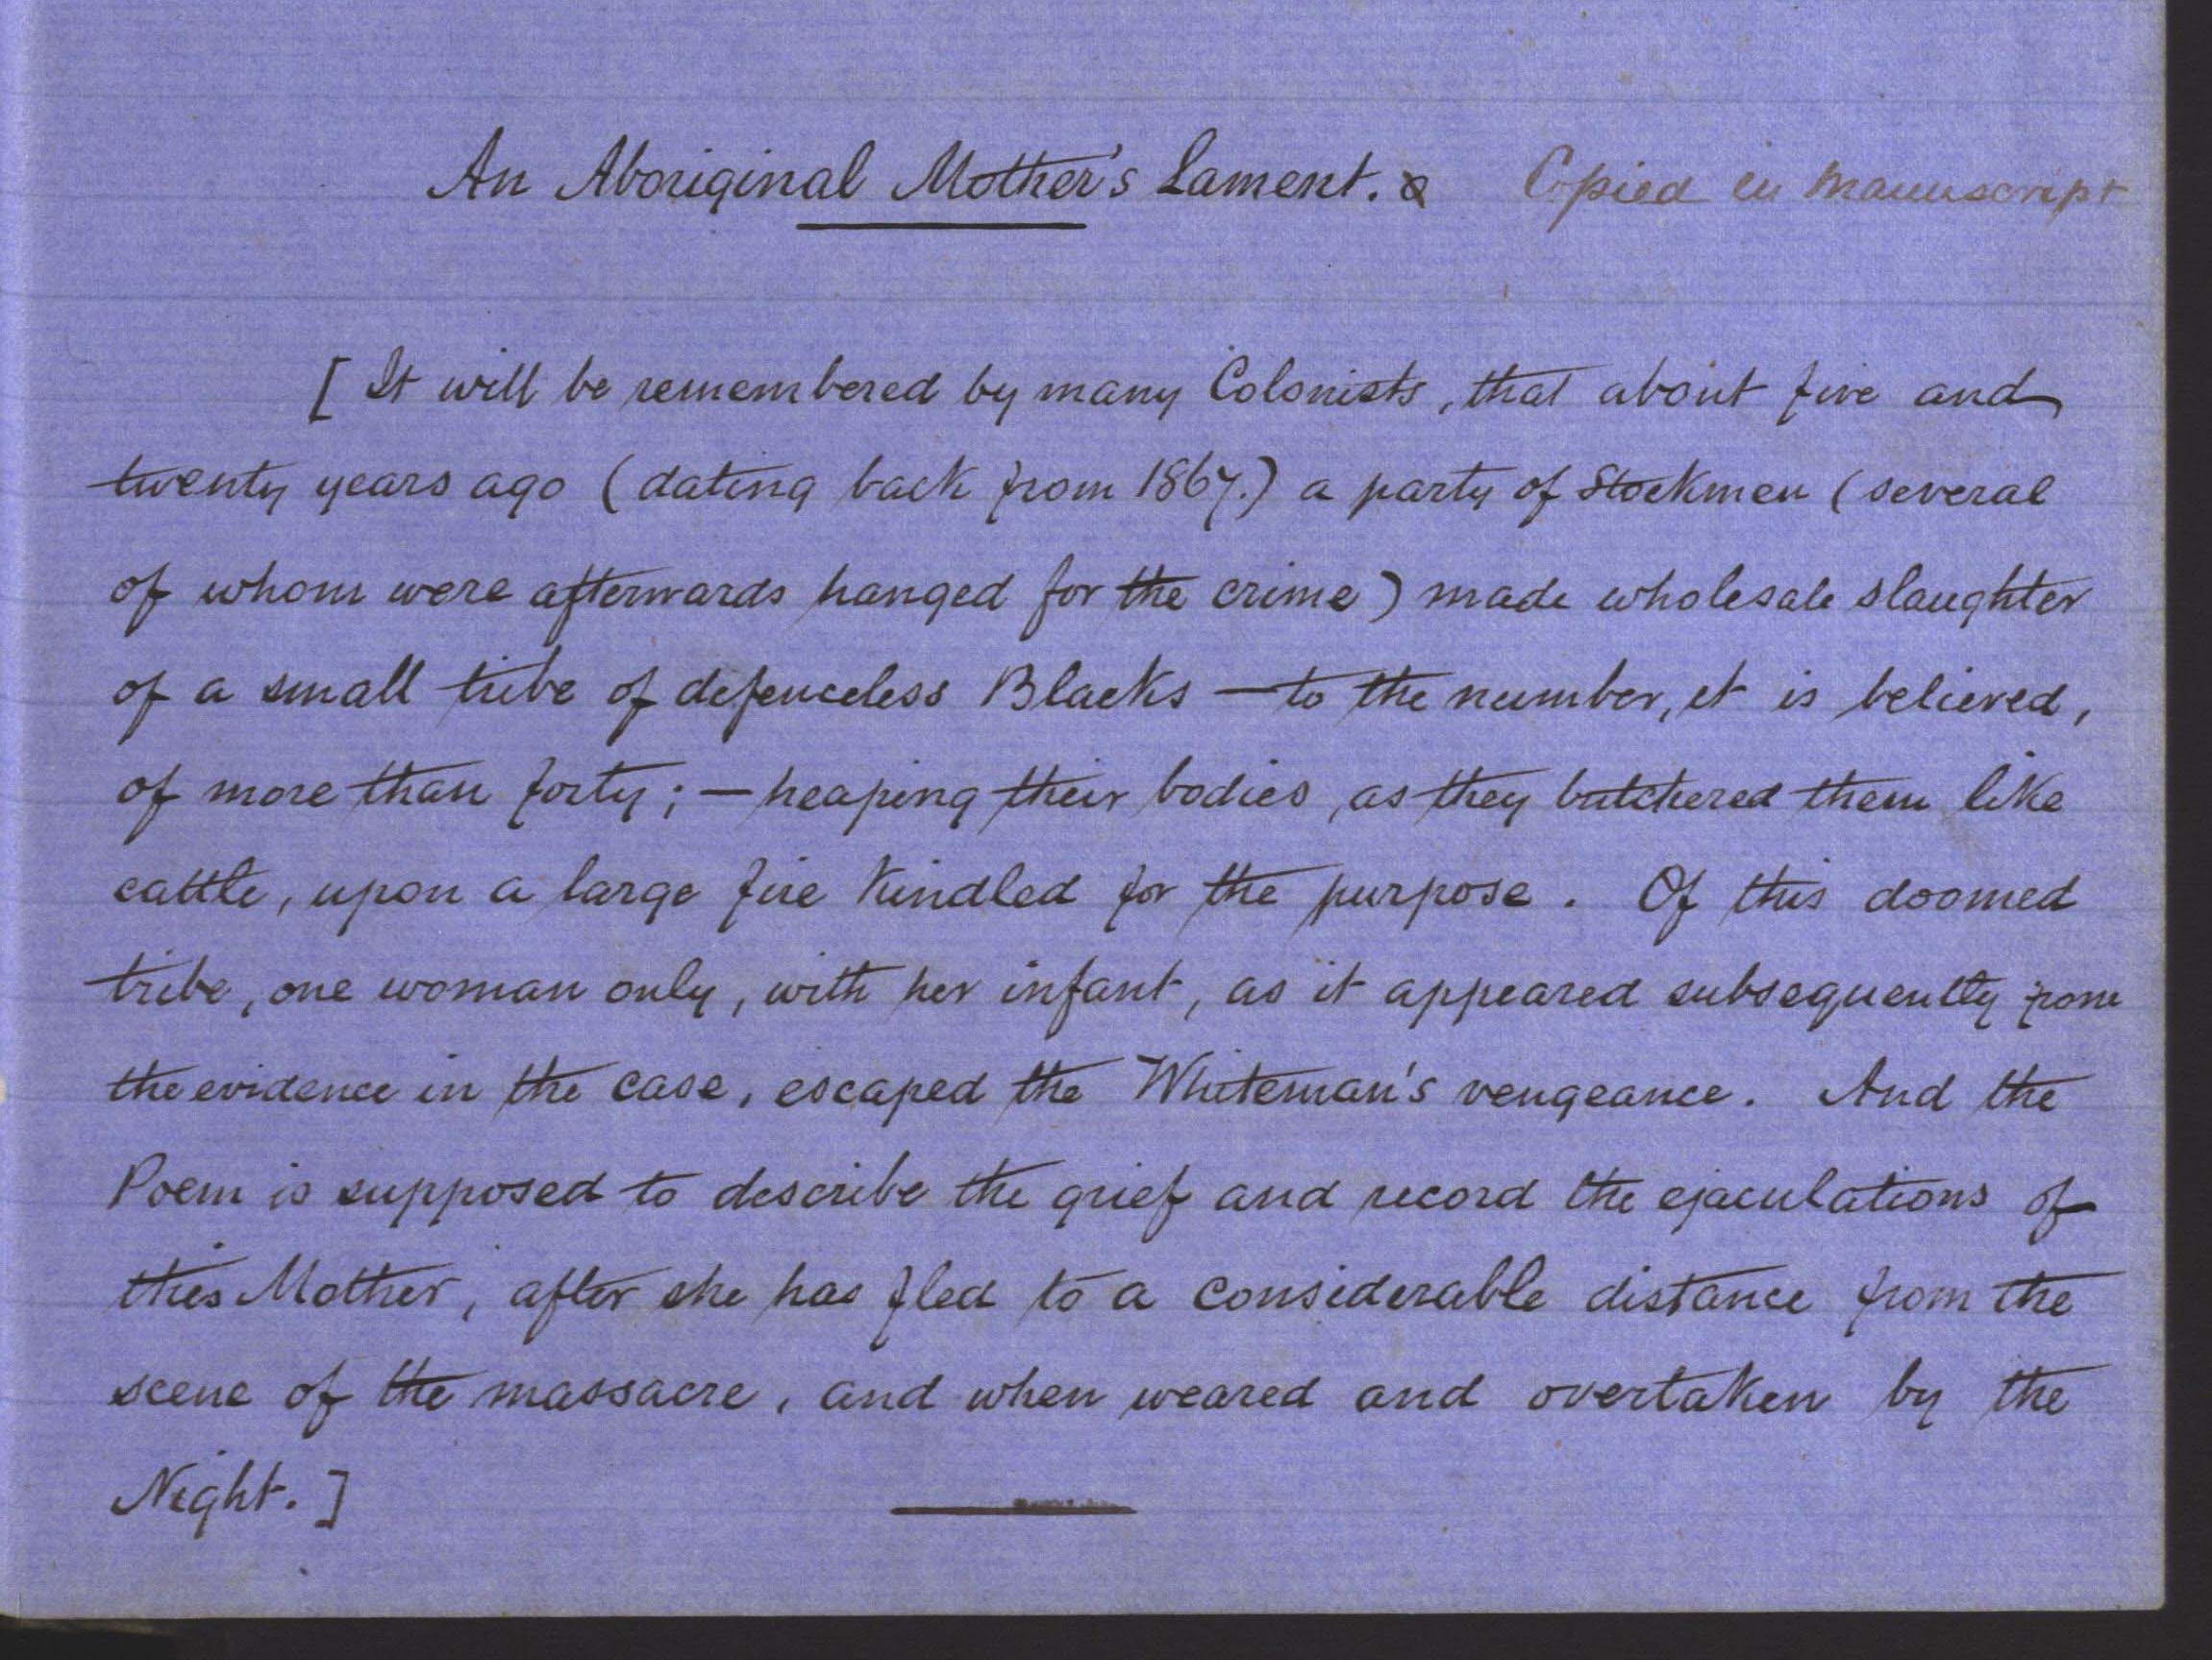 An Aboriginal Mother's Lament. Copied in Manuscript
[It will be remembered by many Colonists, that about five and
twenty years ago (dating back from 1867.) a party of Stockmen (several
of whom were afterwards hanged for the crime) made wholesale slaughter
of a small tribe of defenceless Blacks — to the number, it is believed,
of more than forty; — heaping their bodies, as they butchered them like
cattle, upon a large fire kindled for the purpose. Of this doomed
tribe, one woman only, with her infant, as it appeared subsequently from
the evidence in the case, escaped the Whiteman's vengeance. And the
Poem is supposed to describe the grief and record the ejaculations of
this Mother, after she has fled to a considerable distance from the
scene of the massacre, and when weared and overtaken by the
Night.]